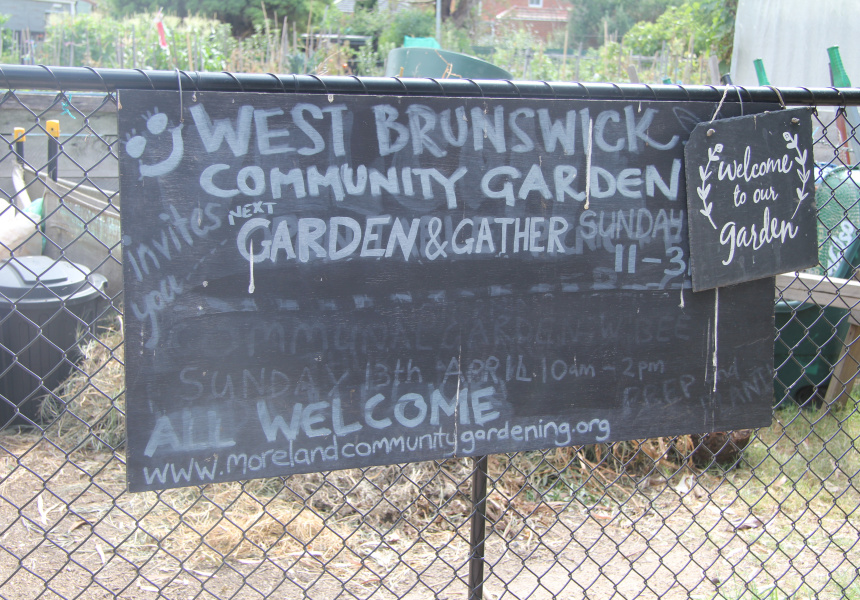 WEST BRUNSWICK
COMMUNITY GARDEN
invites
you
NEXT
GARDEN & GATHER
SUNDAY
11-3
COMMUNAL GARDEN
SUNDAY 13th APRIL 10am - 2pm
ALL WELCOME
www.morelandcommunitygardening.org
Welcome
to our
garden